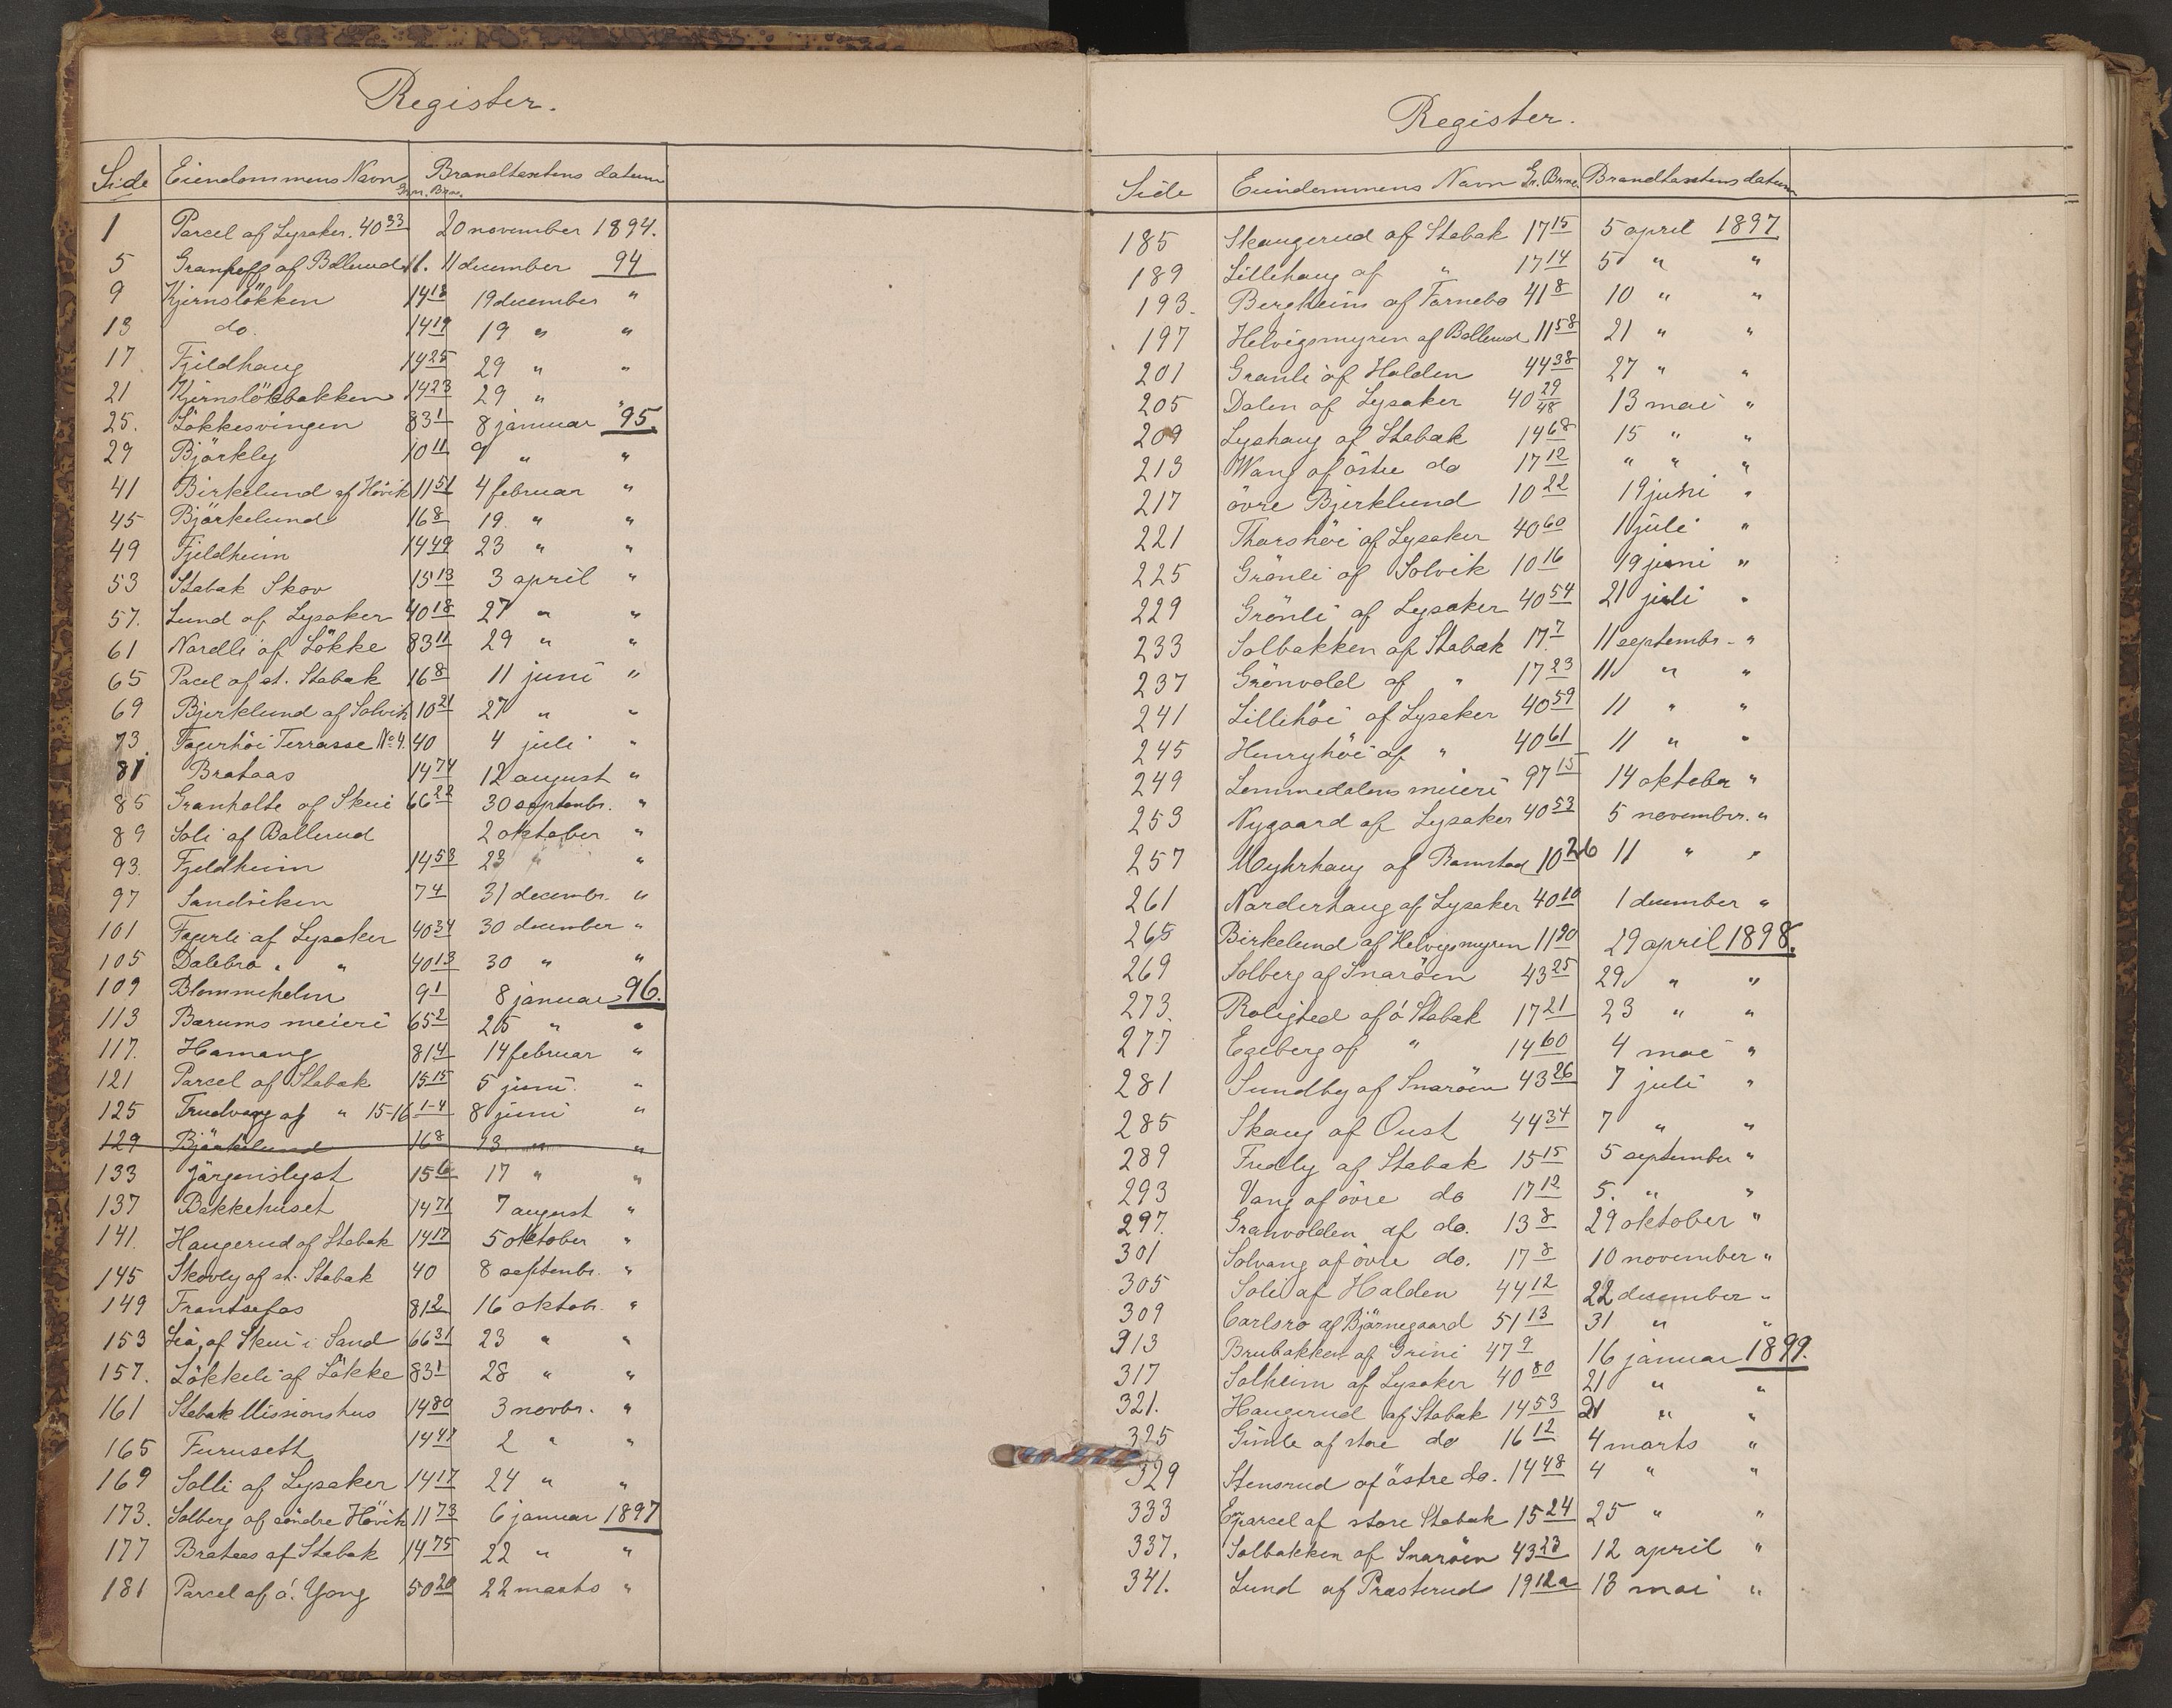 Register.
Side Eiendommens Navn Grn. Brn. Brandtaxtens datum
1 Parcel af Lysaker. 40 33 20 november 1894.
5 Af Ballerud 11. 11 december 94
9 Kjernsløkken 14 18 19 december "
13 do. 14 19 19 " "
17 Fjeldhaug 14 25 29 " "
21 Kjernsløkbakken 14 23 29 " "
25. Løkkesvingen 83 1 8 januar "95.
29 Bjørkly 10 11 9 " "
41 Birkelund af Høvik 11 51 4 februar "
45 Bjørkelund 16 8 19. " "
49 Fjeldheim 14 49 23 " "
53 Stabæk Skov 15 13 3 april "
57. Lund af Lysaker 40 18 27 " "
61 Nordli af Løkke 83 11 29 " "
65 Pacel af st. Stabæk 16 8 11 juni "
69 Bjerklund af Solvik 10 21 27 " "
73. Fagerhöi Terrasse No 4. 40 4 juli "
81 Brataas 14 74 12 august "
85 Granholte af Skui 66 22 30 septembr. "
89 Soli af Ballerud 2 oktober "
93. Fjeldheim 14 53 23 " "
97 Sandviken 7 4 31 decembr. "
101 Fagerli af Lysaker 40 34 30 december "
105 Dalebro " " 40 13 30 " "
109 Blommeholm 9 1 8 januar 96.
113 Bærums meieri 65 2 25 " "
117. Hamang 81 4 14 februar "
121 Parcel af Stabæk 15 15 5 juni. "
125 Trudvang af " 15-16 1-4 8 juni "
129 Bjørkelund 16 8 13 " "
133 Jørgenslyst 15 6 17 " "
137 Bakkehuset 14 71 7 august "
141. Haugerud af Stabæk 14 17 5 oktober "
145 Skovly af st. Stabæk 40 8 septembr. "
149 Frantsefos 81 2 16 oktobr. "
153 Lia, af Skui i Sand 66 31 23 " "
157. Løkkeli af Løkke 83 1 28 " "
161 Stabæk Missionshus 14 80 3 novbr. "
165 Furuseth 14 41 2 " "
169 Solli af Lysaker 14 17 24 " "
173. Solberg af søndre Høvik 11 73 6 januar 1897
177 Brataas af Stabæk 14 75 22 " "
181 Parcel af ö. Yong 50 20 22 marts "
Register.
Side Eiendommens Navn Gr. Brnr. Brandtaxtens datum
185 Skaugerud af Stabæk 17 15 5 april 1897
189 Lillehaug af " 17 14 5 " "
193. Bergheim af Fornebo 41 8 10 " "
197 Helvigsmyren af Ballerud 11 58 21 " "
201 Granli af Holden 44 38 27 " "
205 Dalen af Lysaker 40 29/48 13 mai "
209 Lyshaug af Stabæk 14 68 15 " "
213 Wang af østre do 17 12 " " "
217 övre Bjerklund 10 22 19 juni "
221 Thorshöi af Lysaker 40 60 1 juli "
225 Grönli af Solvik 10 16 19 juni "
229 Grönli af Lysaker 40 54 21 juli "
233 Solbakken af Stabæk 17. 7 11 septembr. "
237 Grönvold af " 17 23 11 " "
241 Lillehöi af Lysaker 40 59 11 " "
245 Henryhöi af " 40 61 11 " "
249 Lommedalens meieri 97 15 14 oktober "
253 Nygaard af Lysaker 40 53 5 novembr. "
257 Myhrhaug af Ramstad 10 26 11 " "
261 Norderhaug af Lysaker 40 10 1 december "
265 Birkelund af Helvigsmyren 11 90 29 april 1898.
269 Solberg af Snaröen 43 25 29 " "
273. Rolighed af ö Stabæk 17 21 23 " "
277 Egeberg af " 14 60 4 mai "
281 Sundby af Snaröen 43 26 7 juli "
285 Skaug af Oust 44 34 7 " "
289 Fredly af Stabæk 15 15 5 september "
293 Vang af övre do 17 12 5. " "
297. Granvolden af do. 13 8 29 oktober "
301 Solvang af övre do. 17 8 10 november "
305 Soli af Halden 44 12 22 december "
309 Carlsro af Bjørnegaard 51 13 31 " "
313 Brubakken af Grini 47 9 16 januar 1899.
317 Solheim af Lysaker 40 80 21 " "
321. Haugerud af Stabæk 14 53 21 " "
325 Gimle af store do 16 12 4 marts "
329 Stensrud af östre do. 14 48 4 " "
333 Eparcel af store Stabæk 15 24 25 " "
337. Solbakken af Snaröen 43 23 12 april "
341. Lund af Præsterud 19 12a 13 mai "